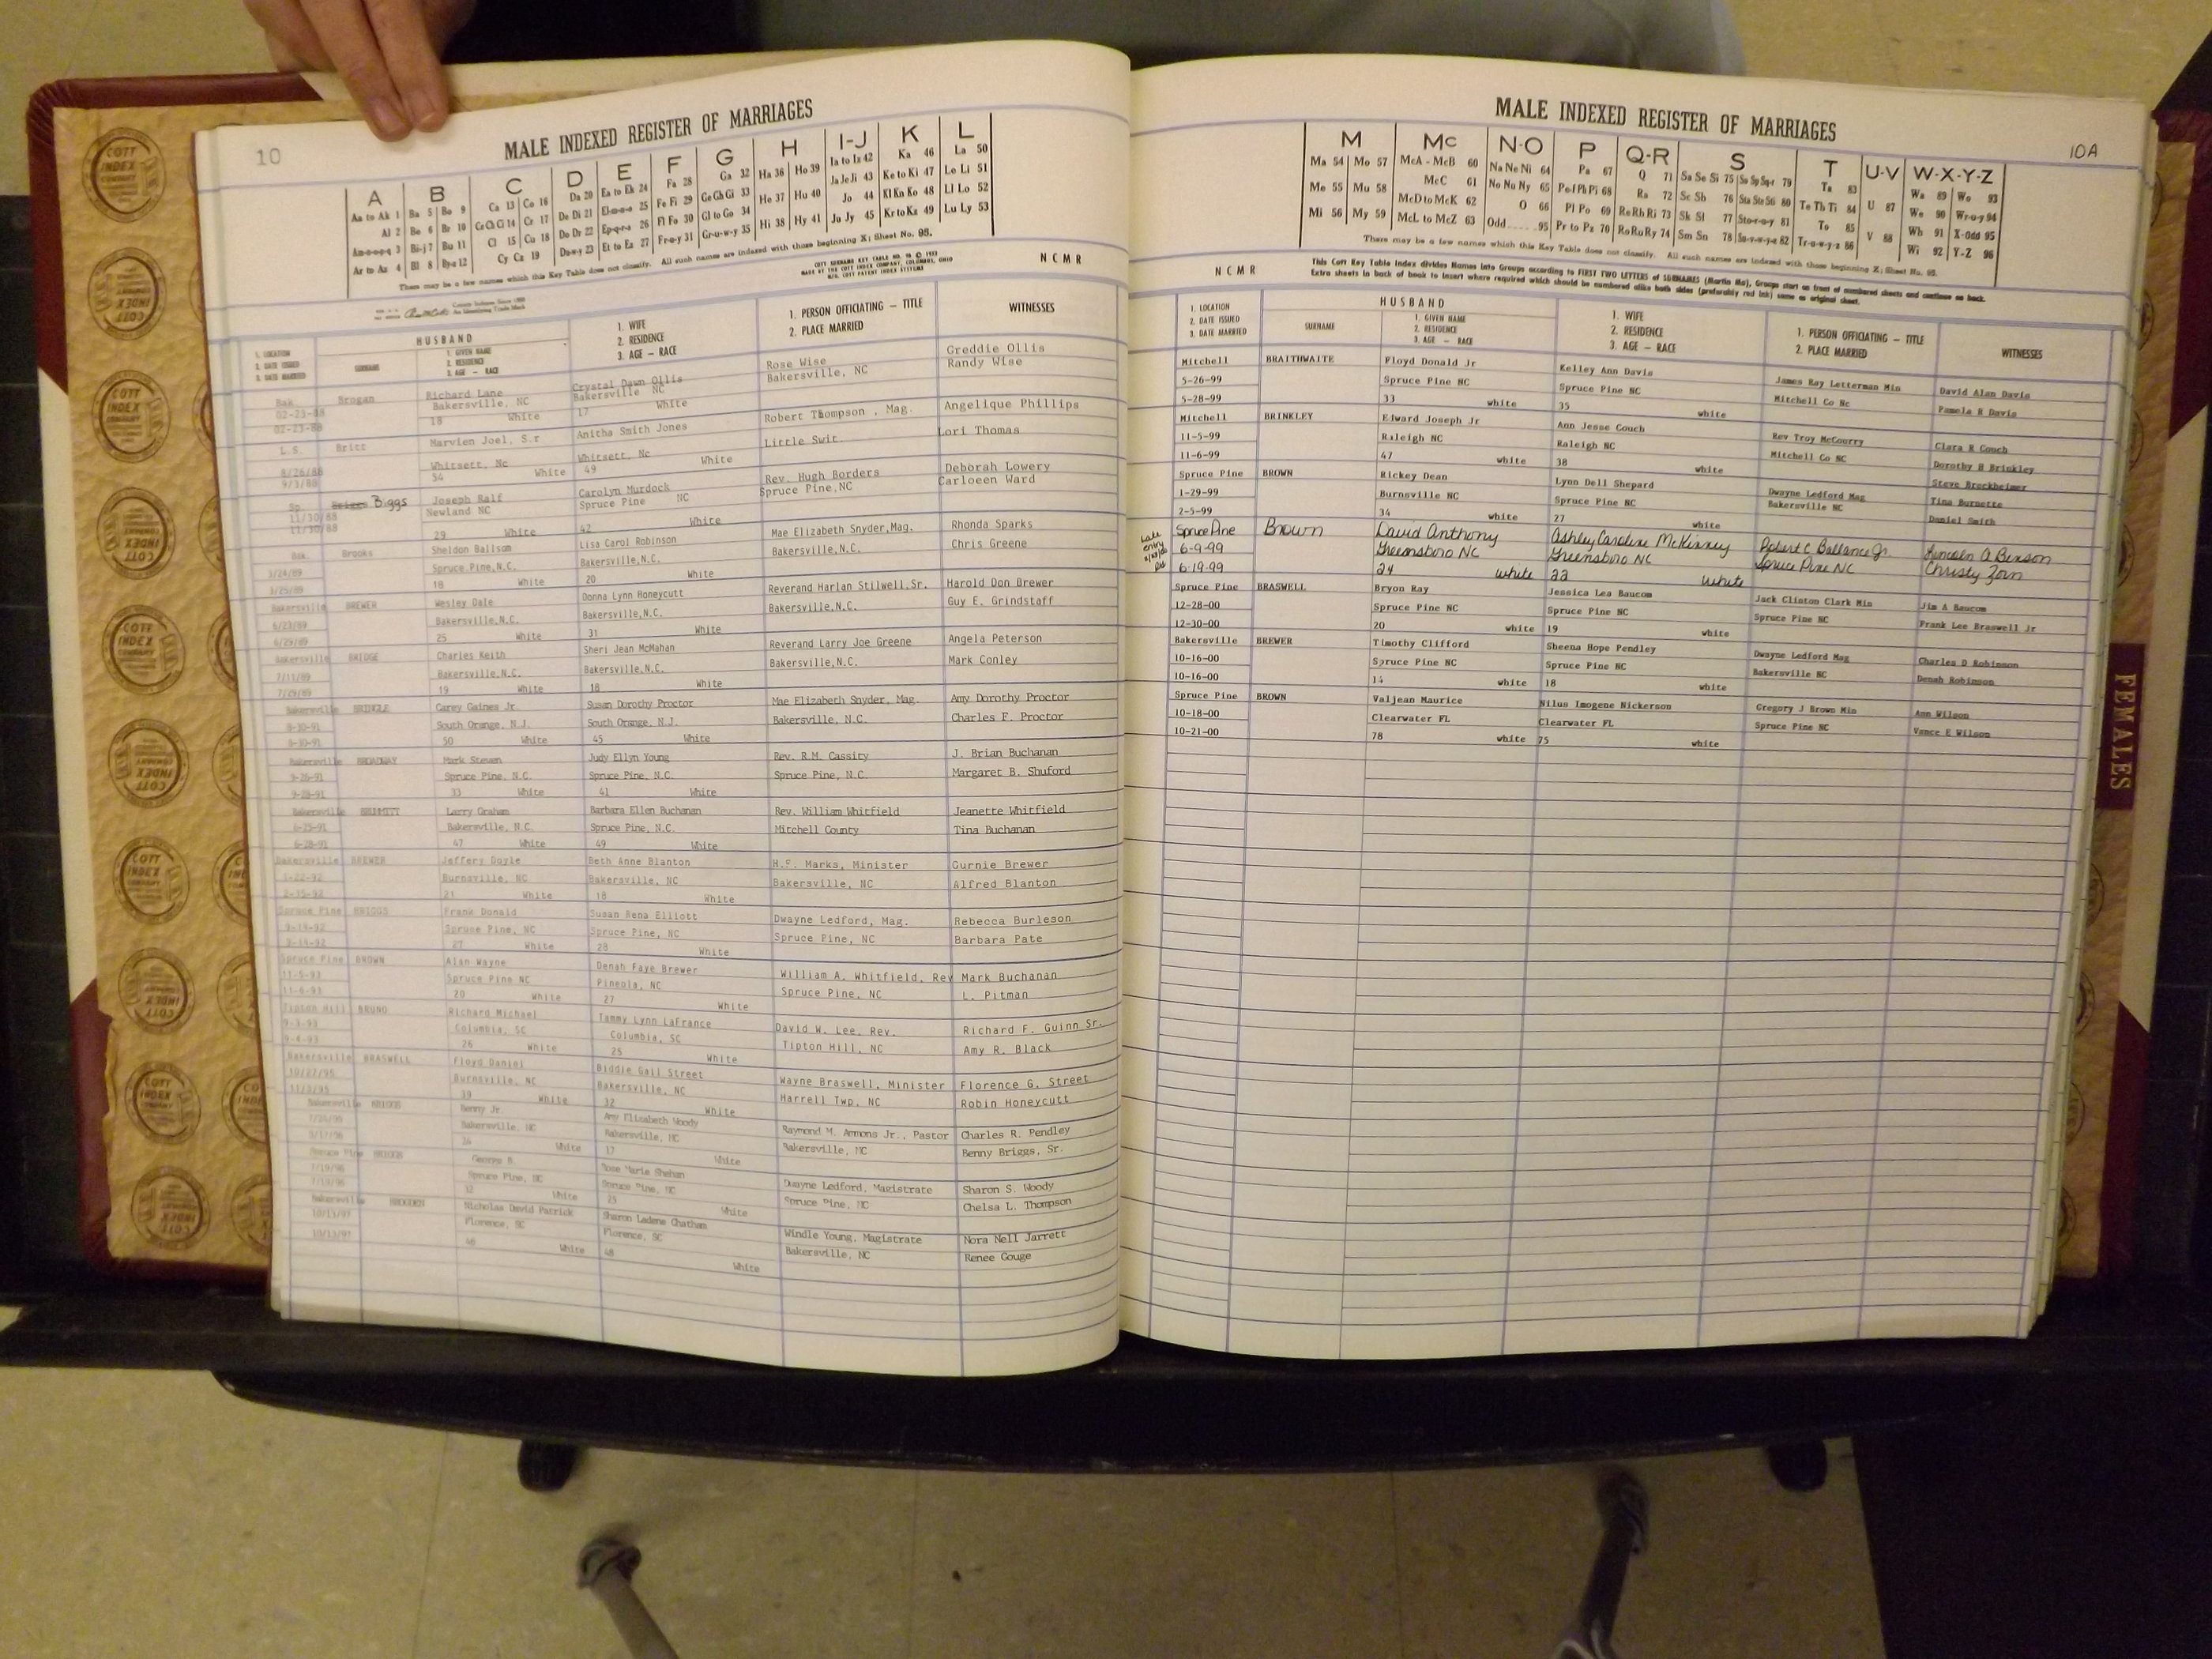 10
MALE INDEXED REGISTER OF MARRIAGES
A B C D E F G H I-J K L
Aa to Ak 1 Ba 5 Bo 9 Ca 13 Co 16 Da 20 Ea to Ek 24 Fa 28 Ga 32 Ha 36 Ho 39 Ia to Iz 42 Ka 46 La 50
Al 2 Be 6 Br 10 Ce Ch Ci 14 Cr 17 De Di 21 El-m-n-o 25 Fe Fi 29 Ge Gh Gi 33 He 37 Hu 40 Ja Je Ji 43 Ke to Ki 47 Le Li 51
Am-n-o-p-q 3 Bi-j 7 Bu 11 Cl 15 Cu 18 Do Dr 22 Ep-q-r-s 26 Fl Fo 30 Gl to Go 34 Hi 38 Hy 41 Jo 44 Kl Kn Ko 48 Ll Lo 52
Ar to Az 4 Bl 8 By-z 12 Cy Cz 19 Du-w-y 23 Et to Ez 27 Fr-u-y 31 Gr-u-w-y 35 Ju Jy 45 Kr to Kz 49 Lu Ly 53
There may be a few names which this Key Table does not classify. All such names are indexed with those beginning X; Sheet No. 95.
NCMR
HUSBAND
1. LOCATION 2. DATE ISSUED 3. DATE MARRIED
SURNAME
1. GIVEN NAME 2. RESIDENCE 3. AGE — RACE
1. WIFE 2. RESIDENCE 3. AGE — RACE
1. PERSON OFFICIATING — TITLE 2. PLACE MARRIED
WITNESSES
Bak. Brogan Richard Lane Crystal Dawn Ollis Rose Wise Greddie Ollis
02-23-88 Bakersville, NC Bakersville NC Bakersville, NC Randy Wise
02-23-88 18 White 17 White
L.S. Britt Marvien Joel, S.r Anitha Smith Jones Robert Thompson , Mag. Angelique Phillips
8/26/88 Whitsett, Nc Whitsett, Nc Little Swit. Lori Thomas
9/3/88 54 White 49 White
Sp. Biggs Joseph Ralf Carolyn Murdock Rev. Hugh Borders Deborah Lowery
11/30/88 Newland NC Spruce Pine NC Spruce Pine,NC Carloeen Ward
11/30/88 29 White 42 White
Bak. Brooks Sheldon Ballsom Lisa Carol Robinson Mae Elizabeth Snyder,Mag. Rhonda Sparks
3/24/89 Spruce Pine,N.C. Bakersville,N.C. Bakersville,N.C. Chris Greene
3/25/89 18 White 20 White
Bakersville BREWER Wesley Dale Donna Lynn Honeycutt Reverand Harlan Stilwell,Sr. Harold Don Brewer
6/23/89 Bakersville,N.C. Bakersville,N.C. Bakersville,N.C. Guy E. Grindstaff
6/29/89 25 White 31 White
Bakersville BRIDGE Charles Keith Sheri Jean McMahan Reverand Larry Joe Greene Angela Peterson
7/11/89 Bakersville,N.C. Bakersville,N.C. Bakersville,N.C. Mark Conley
7/29/89 19 White 18 White
Bakersville BRINGLE Carey Gaines Jr. Susan Dorothy Proctor Mae Elizabeth Snyder, Mag. Amy Dorothy Proctor
8-30-91 South Orange, N.J. South Orange, N.J. Bakersville, N.C. Charles F. Proctor
8-30-91 50 White 45 White
Bakersville BROADWAY Mark Steven Judy Ellyn Young Rev. R.M. Cassity J. Brian Buchanan
9-26-91 Spruce Pine, N.C. Spruce Pine, N.C. Spruce Pine, N.C. Margaret B. Shuford
9-28-91 33 White 41 White
Bakersville BRUMMITT Larry Graham Barbara Ellen Buchanan Rev. William Whitfield Jeanette Whitfield
6-25-91 Bakersville, N.C. Spruce Pine, N.C. Mitchell County Tina Buchanan
6-28-91 47 White 49 White
Bakersville BREWER Jeffery Doyle Beth Anne Blanton H.E. Marks, Minister Gurnie Brewer
1-22-92 Burnsville, NC Bakersville, NC Bakersville, NC Alfred Blanton
2-15-92 21 White 18 White
Spruce Pine BRIGGS Frank Donald Susan Rena Elliott Dwayne Ledford, Mag. Rebecca Burleson
9-14-92 Spruce Pine, NC Spruce Pine, NC Spruce Pine, NC Barbara Pate
9-14-92 27 White 28 White
Spruce Pine BROWN Alan Wayne Denah Faye Brewer William A. Whitfield, Rev Mark Buchanan
11-5-93 Spruce Pine NC Pineola, NC Spruce Pine, NC L. Pitman
11-6-93 20 White 27 White
Tipton Hill BRUNO Richard Michael Tammy Lynn LaFrance David W. Lee, Rev. Richard F. Guinn Sr.
9-3-93 Columbia, SC Columbia, SC Tipton Hill, NC Amy R. Black
9-4-93 26 White 25 White
Bakersville BRASWELL Floyd Daniel Biddie Gail Street Wayne Braswell, Minister Florence G. Street
10/27/95 Burnsville, NC Bakersville, NC Harrell Twp, NC Robin Honeycutt
11/3/95 39 White 32 White
Bakersville BRIGGS Benny Jr. Amy Elizabeth Woody Raymond M. Ammons Jr., Pastor Charles R. Pendley
Bakersville, NC Bakersville, NC Bakersville, NC Benny Briggs, Sr.
White 17 White
Spruce Pine BRIGGS George B. Rose Marie Shehan Dwayne Ledford, Magistrate Sharon S. Woody
7/19/96 Spruce Pine, NC Spruce Pine, NC Spruce Pine, NC Chelsa L. Thompson
7/19/96 White 25 White
Bakersville BROGDEN Nicholas David Patrick Sharon Ladene Chatham Windle Young, Magistrate Nora Nell Jarrett
10/13/97 Florence, SC Florence, SC Bakersville, NC Renee Gouge
10/13/97 46 White 48 White
10A
MALE INDEXED REGISTER OF MARRIAGES
M Mc N-O P Q-R S T U-V W-X-Y-Z
Ma 54 Mo 57 McA - McB 60 Na Ne Ni 64 Pa 67 Q 71 Sa Se Si 75 So Sp Sq-r 79 Ta 83 U 87 Wa 89 Wo 93
Me 55 Mu 58 McC 61 No Nu Ny 65 Pe-f Ph Pi 68 Ra 72 Sc Sh 76 Sta Ste Sti 80 Te Th Ti 84 V 88 We 90 Wr-u-y 94
Mi 56 My 59 McD to McK 62 O 66 Pl Po 69 Re Rh Ri 73 Sk Sl 77 Sto-r-u-y 81 To 85 Wh 91 X-Odd 95
McL to McZ 63 Odd 95 Pr to Pz 70 Ro Ru Ry 74 Sm Sn 78 Su-v-w-y-z 82 Tr-u-w-y-z 86 Wi 92 Y-Z 96
There may be a few names which this Key Table does not classify. All such names are indexed with those beginning X; Sheet No. 95.
NCMR
This Cott Key Table Index divides Names into Groups according to FIRST TWO LETTERS of SURNAMES (Martin Ma), Groups start on front of numbered sheets and continue on back.
Extra sheets in back of book to insert where required which should be numbered alike both sides (preferably red ink) same as original sheet.
HUSBAND
1. LOCATION 2. DATE ISSUED 3. DATE MARRIED
SURNAME
1. GIVEN NAME 2. RESIDENCE 3. AGE — RACE
1. WIFE 2. RESIDENCE 3. AGE — RACE
1. PERSON OFFICIATING — TITLE 2. PLACE MARRIED
WITNESSES
Mitchell BRAITHWAITE Floyd Donald Jr Kelley Ann Davis James Ray Letterman Min David Alan Davis
5-26-99 Spruce Pine NC Spruce Pine NC Mitchell Co Nc Pamela R Davis
5-28-99 33 white 35 white
Mitchell BRINKLEY Edward Joseph Jr Ann Jesse Couch Rev Troy McCourry Clara R Couch
11-5-99 Raleigh NC Raleigh NC Mitchell Co NC Dorothy H Brinkley
11-6-99 47 white 38 white Steve Breckheimer
Spruce Pine BROWN Rickey Dean Lynn Dell Shepard Dwayne Ledford Mag Tina Burnette
1-29-99 Burnsville NC Spruce Pine NC Bakersville NC Daniel Smith
2-5-99 34 white 27 white
Late entry Spruce Pine Brown David Anthony Ashley Caroline McKinney Robert C Ballance Jr. Lincoln A Benson
6-9-99 Greensboro NC Greensboro NC Spruce Pine NC Christy Zorn
6-19-99 24 white 22 white
Spruce Pine BRASWELL Bryon Ray Jessica Lea Baucom Jack Clinton Clark Min Jim A Baucom
12-28-00 Spruce Pine NC Spruce Pine NC Spruce Pine NC Frank Lee Braswell Jr
12-30-00 20 white 19 white
Bakersville BREWER Timothy Clifford Sheena Hope Pendley Dwayne Ledford Mag Charles D Robinson
10-16-00 Spruce Pine NC Spruce Pine NC Bakersville NC Denah Robinson
10-16-00 white 18 white
Spruce Pine BROWN Valjean Maurice Nilus Imogene Nickerson Gregory J Brown Min Ann Wilson
10-18-00 Clearwater FL Clearwater FL Spruce Pine NC Vance E Wilson
10-21-00 78 white 75 white
FEMALES
COTT INDEX COMPANY